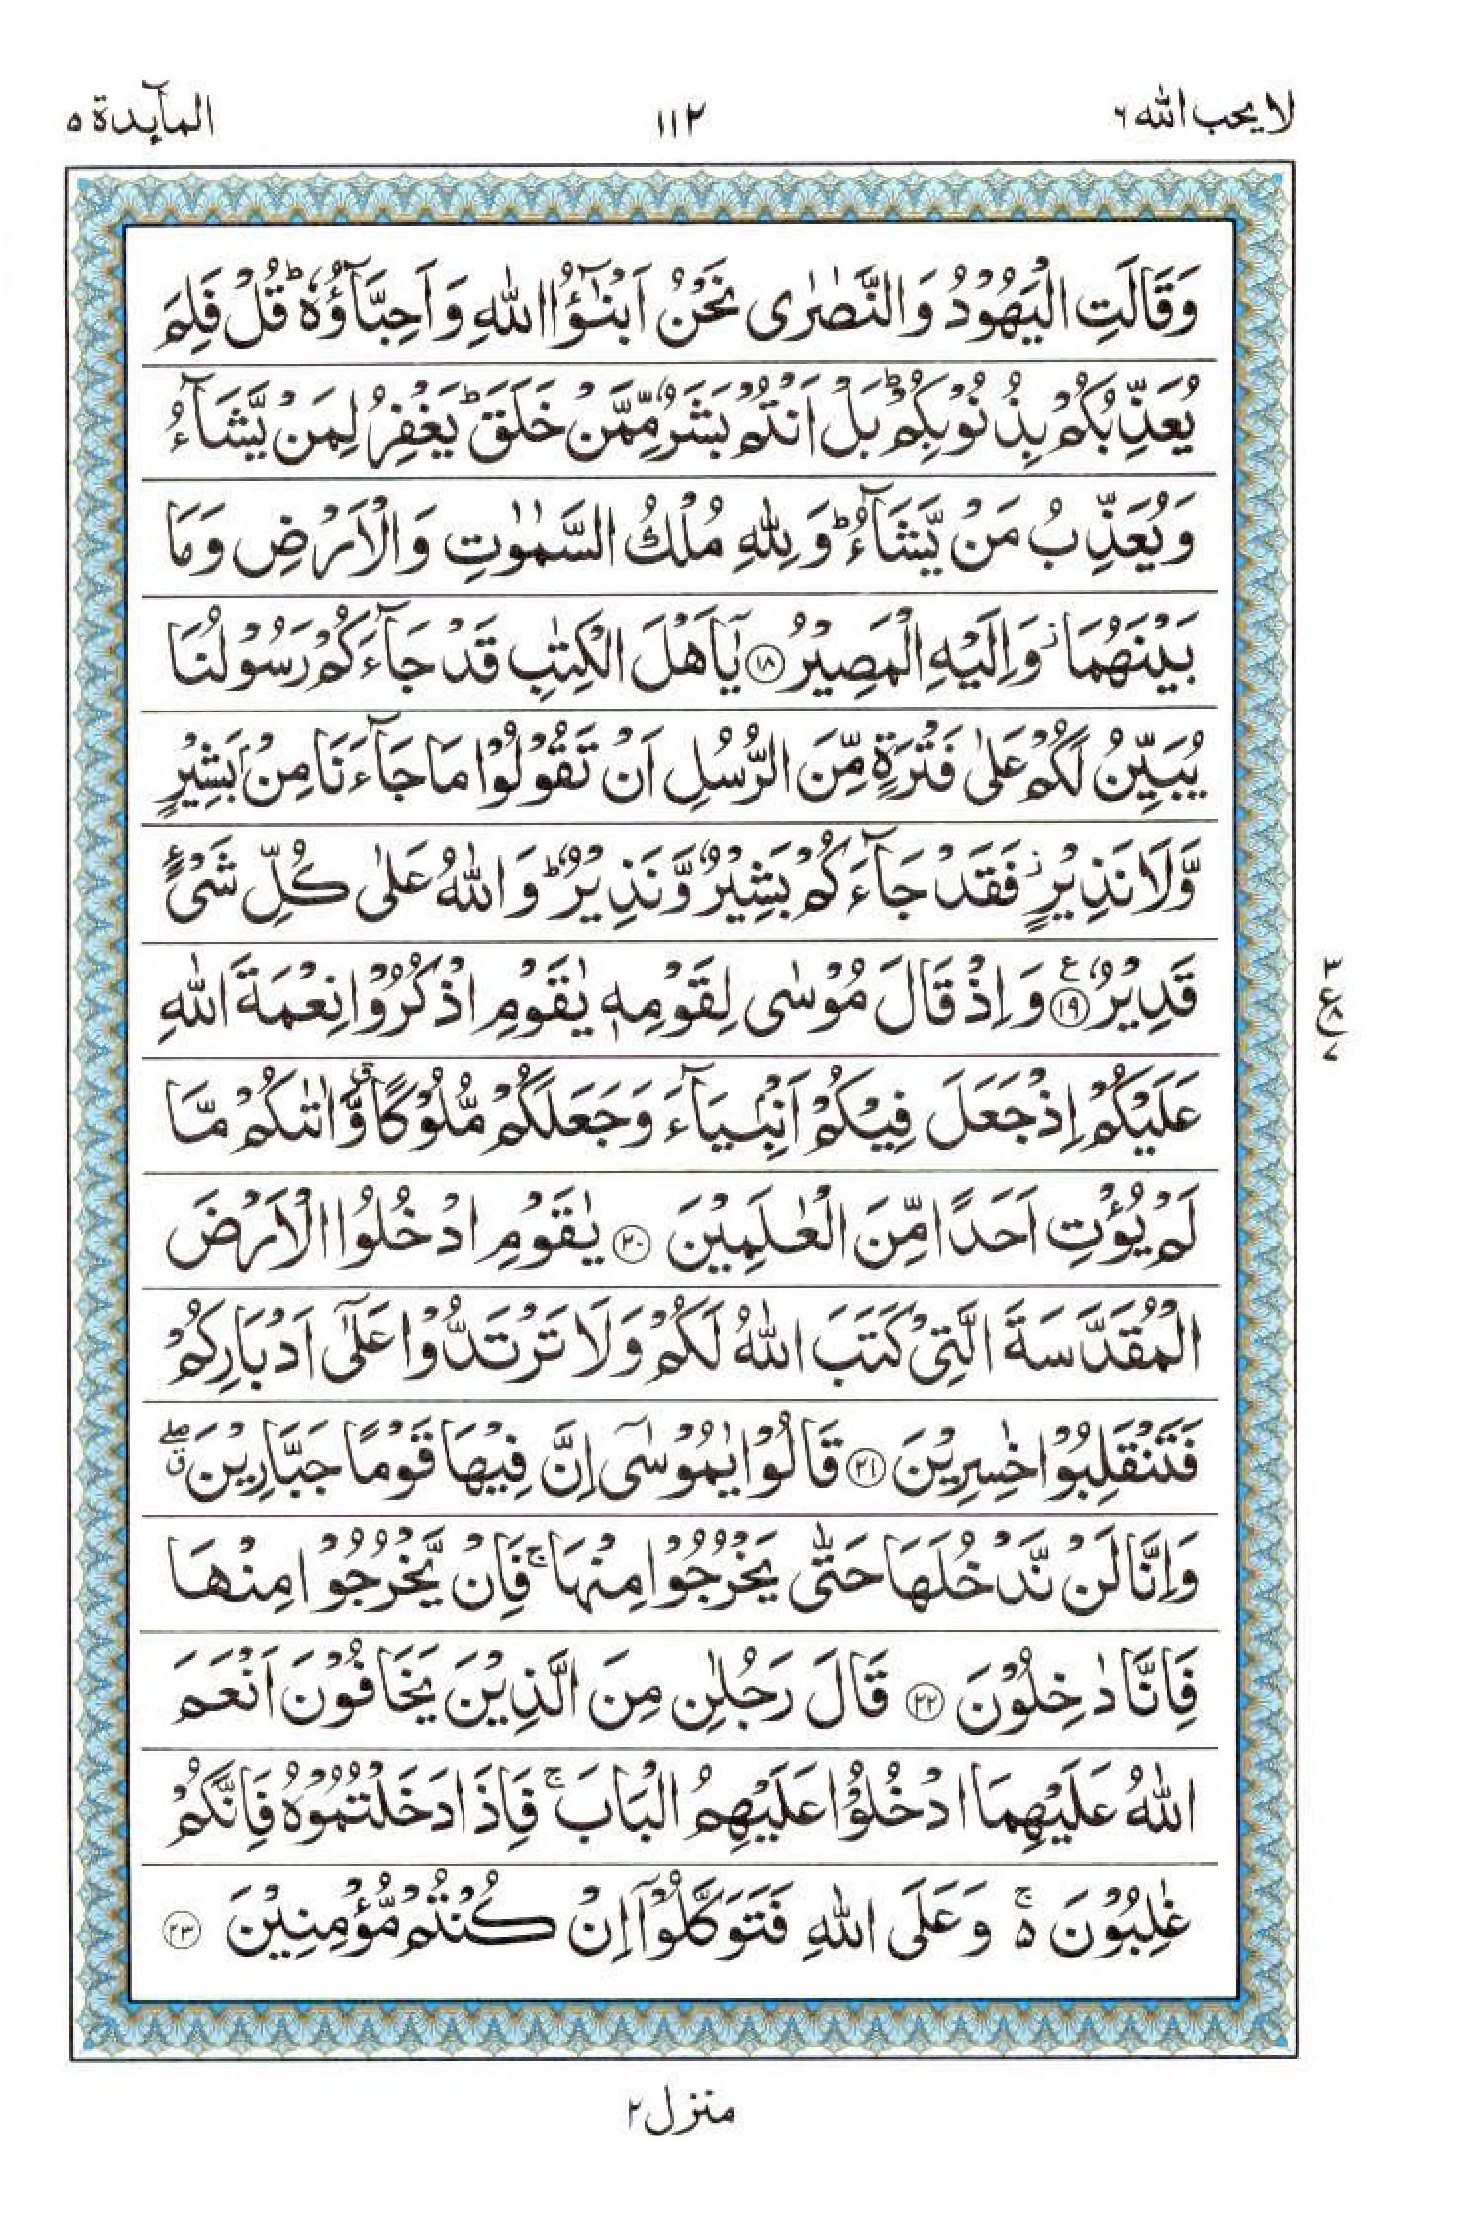 لا يحب الله ٦
١١٢
المآئدة ٥
وَقَالَتِ الْيَهُوْدُ وَالنَّصٰرٰى نَحْنُ اَبْنٰٓؤُا اللّٰهِ وَاَحِبَّآؤُهٗ ؕ قُلْ فَلِمَ
يُعَذِّبُكُمْ بِذُنُوْبِكُمْ ؕ بَلْ اَنْتُمْ بَشَرٌ مِّمَّنْ خَلَقَ ؕ يَغْفِرُ لِمَنْ يَّشَآءُ
وَيُعَذِّبُ مَنْ يَّشَآءُ ؕ وَلِلّٰهِ مُلْكُ السَّمٰوٰتِ وَالْاَرْضِ وَمَا
بَيْنَهُمَا ز وَاِلَيْهِ الْمَصِيْرُ ﴿١٨﴾ يٰۤاَهْلَ الْكِتٰبِ قَدْ جَآءَكُمْ رَسُوْلُنَا
يُبَيِّنُ لَكُمْ عَلٰى فَتْرَةٍ مِّنَ الرُّسُلِ اَنْ تَقُوْلُوْا مَا جَآءَنَا مِنْۢ بَشِيْرٍ
وَّلَا نَذِيْرٍ ز فَقَدْ جَآءَكُمْ بَشِيْرٌ وَّنَذِيْرٌ ؕ وَاللّٰهُ عَلٰى كُلِّ شَيْءٍ
قَدِيْرٌ ﴿١٩﴾ ع وَاِذْ قَالَ مُوْسٰى لِقَوْمِهٖ يٰقَوْمِ اذْكُرُوْا نِعْمَةَ اللّٰهِ
عَلَيْكُمْ اِذْ جَعَلَ فِيْكُمْ اَنْۢبِيَآءَ وَجَعَلَكُمْ مُّلُوْكًا ق وَّاٰتٰىكُمْ مَّا
لَمْ يُؤْتِ اَحَدًا مِّنَ الْعٰلَمِيْنَ ﴿٢٠﴾ يٰقَوْمِ ادْخُلُوا الْاَرْضَ
الْمُقَدَّسَةَ الَّتِيْ كَتَبَ اللّٰهُ لَكُمْ وَلَا تَرْتَدُّوْا عَلٰٓى اَدْبَارِكُمْ
فَتَنْقَلِبُوْا خٰسِرِيْنَ ﴿٢١﴾ قَالُوْا يٰمُوْسٰٓى اِنَّ فِيْهَا قَوْمًا جَبَّارِيْنَ ق صلے
وَاِنَّا لَنْ نَّدْخُلَهَا حَتّٰى يَخْرُجُوْا مِنْهَا ج فَاِنْ يَّخْرُجُوْا مِنْهَا
فَاِنَّا دٰخِلُوْنَ ﴿٢٢﴾ قَالَ رَجُلٰنِ مِنَ الَّذِيْنَ يَخَافُوْنَ اَنْعَمَ
اللّٰهُ عَلَيْهِمَا ادْخُلُوْا عَلَيْهِمُ الْبَابَ ج فَاِذَا دَخَلْتُمُوْهُ فَاِنَّكُمْ
غٰلِبُوْنَ ە ج وَعَلَى اللّٰهِ فَتَوَكَّلُوْٓا اِنْ كُنْتُمْ مُّؤْمِنِيْنَ ﴿٢٣﴾
٣
ع ٨
٧
منزل ٢